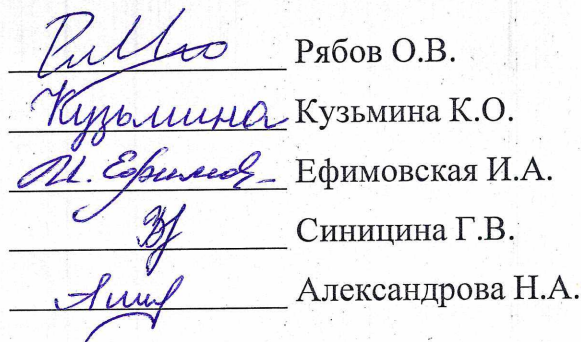 Рябов О.В.
Кузьмина Кузьмина К.О.
И. Ефимов Ефимовская И.А.
Синицина Г.В.
Александрова Н.А.